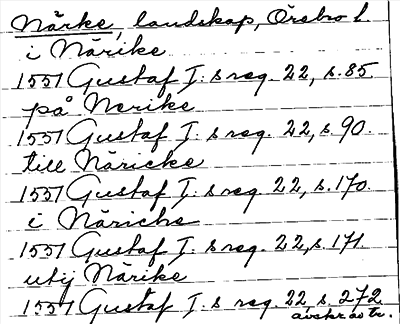 Närke, landskap, Örebro l.
i Närike
1551 Gustaf I:s reg. 22, s. 85.
på Nerike
1551 Gustaf I:s reg. 22, s. 90.
till Näricke
1551 Gustaf I:s reg. 22, s. 170.
i Näriche
1551 Gustaf I:s reg. 22, s. 171.
utij Närike
1551 Gustaf I:s reg. 22, s. 272
avskr. av tr.